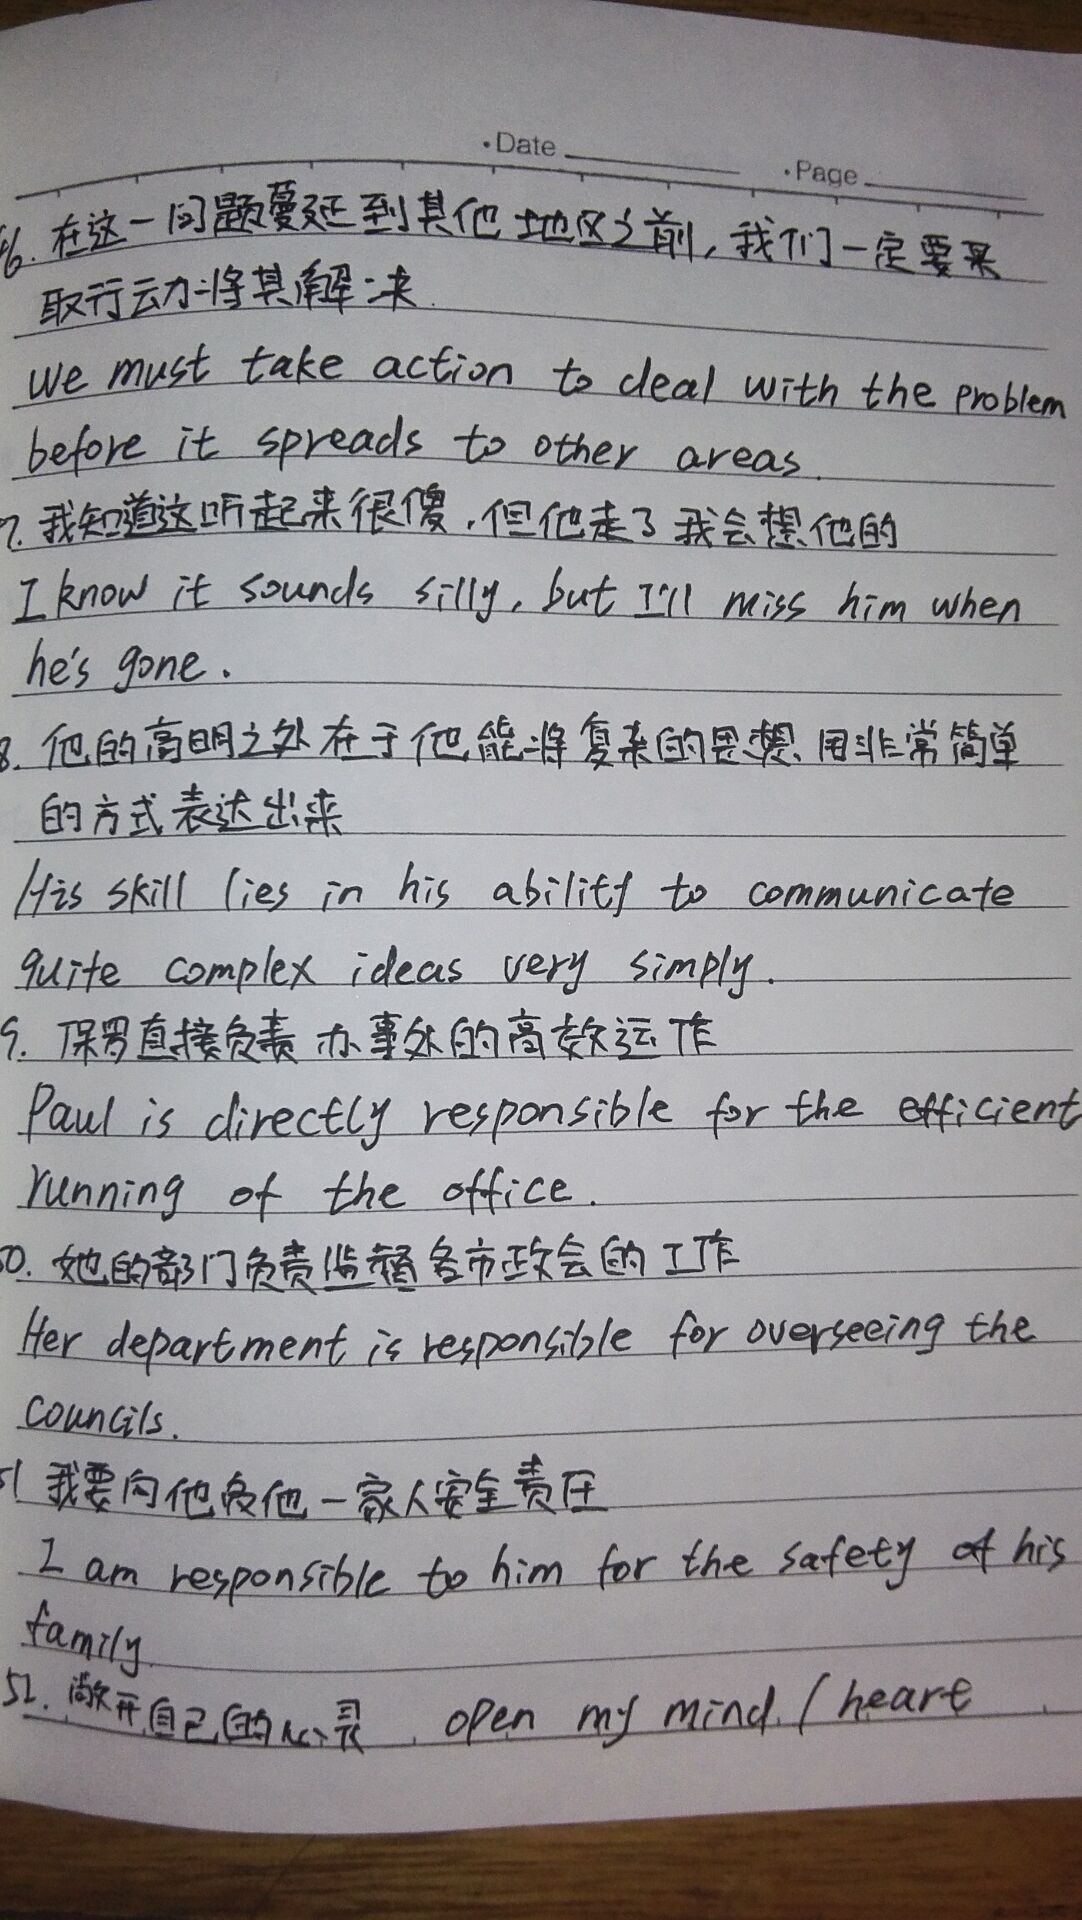 ·Date
·Page
46. 在这一问题蔓延到其他地区之前,我们一定要采
取行动将其解决.
We must take action to deal with the problem
before it spreads to other areas.
7. 我知道这听起来很傻,但他走了我会想他的
I know it sounds silly, but I'll miss him when
he's gone.
8. 他的高明之处在于他能将复杂的思想、用非常简单
的方式表达出来
His skill lies in his ability to communicate
quite complex ideas very simply.
9. 保罗直接负责办事处的高效运作
Paul is directly responsible for the efficient
running of the office.
50. 她的部门负责监督各市政会的工作
Her department is responsible for overseeing the
councils.
51 我要向他负他一家人安全责任
I am responsible to him for the safety of his
family.
52. 敞开自己的心灵. open my mind / heart